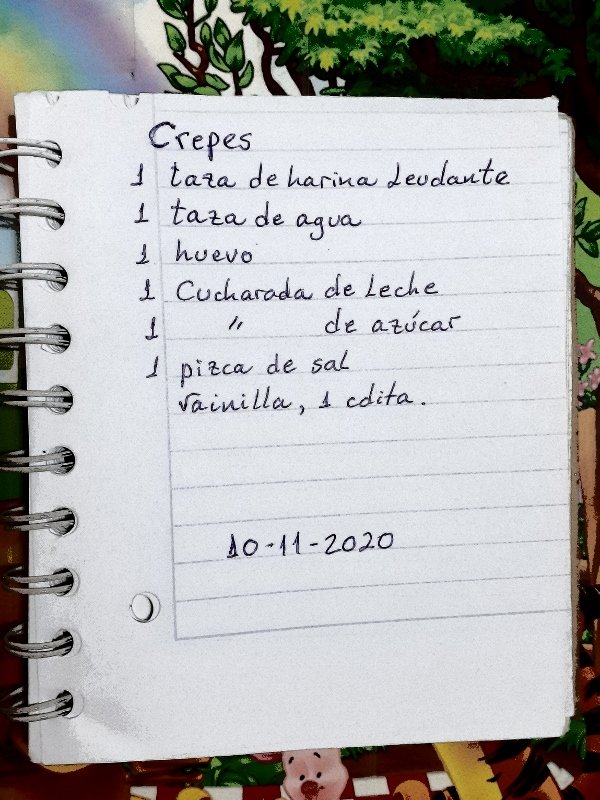 Crepes
1 taza de harina Leudante
1 taza de agua
1 huevo
1 Cucharada de Leche
1 〃 de azúcar
1 pizca de sal
vainilla, 1 cdita.
10-11-2020